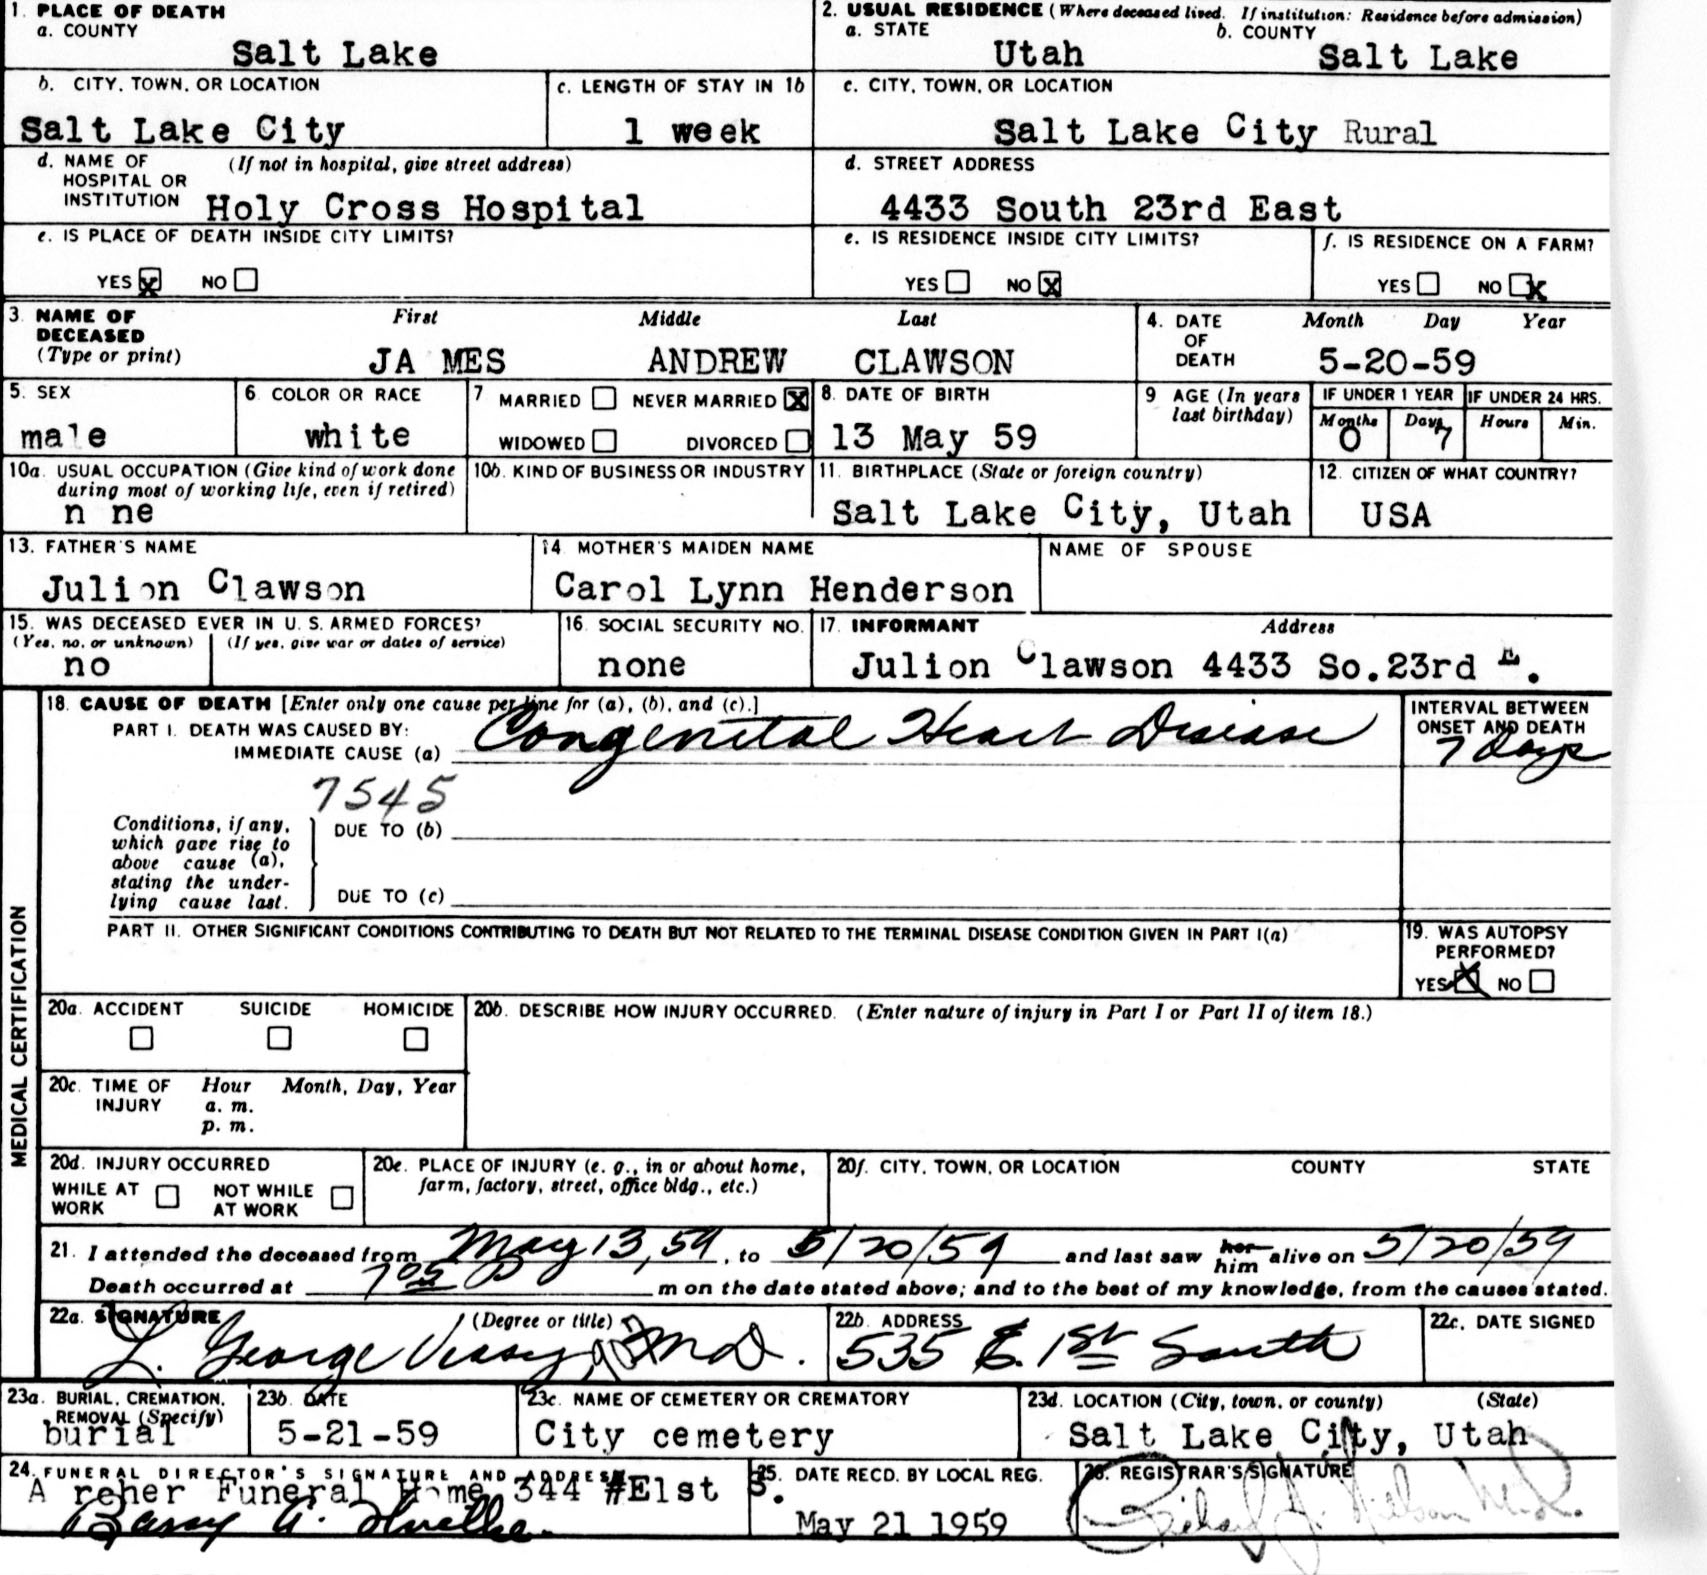 1. PLACE OF DEATH
a. COUNTY
Salt Lake
2. USUAL RESIDENCE (Where deceased lived. If institution: Residence before admission)
a. STATE
Utah
b. COUNTY
Salt Lake
b. CITY, TOWN, OR LOCATION
Salt Lake City
c. LENGTH OF STAY IN 1b
1 week
c. CITY, TOWN, OR LOCATION
Salt Lake City Rural
d. NAME OF (If not in hospital, give street address)
HOSPITAL OR
INSTITUTION Holy Cross Hospital
d. STREET ADDRESS
4433 South 23rd East
e. IS PLACE OF DEATH INSIDE CITY LIMITS?
YES x NO
e. IS RESIDENCE INSIDE CITY LIMITS?
YES NO X
f. IS RESIDENCE ON A FARM?
YES NO x
3. NAME OF DECEASED (Type or print)
First Middle Last
JA MES ANDREW CLAWSON
4. DATE OF DEATH
Month Day Year
5-20-59
5. SEX
male
6. COLOR OR RACE
white
7 MARRIED NEVER MARRIED X
WIDOWED DIVORCED
8. DATE OF BIRTH
13 May 59
9 AGE (In years last birthday)
IF UNDER 1 YEAR IF UNDER 24 HRS.
Months Days Hours Min.
0 7
10a. USUAL OCCUPATION (Give kind of work done
during most of working life, even if retired)
n ne
10b. KIND OF BUSINESS OR INDUSTRY
11. BIRTHPLACE (State or foreign country)
Salt Lake City, Utah
12. CITIZEN OF WHAT COUNTRY?
USA
13. FATHER'S NAME
Julion Clawson
14 MOTHER'S MAIDEN NAME
Carol Lynn Henderson
NAME OF SPOUSE
15. WAS DECEASED EVER IN U. S. ARMED FORCES?
(Yes, no, or unknown) (If yes, give war or dates of service)
no
16. SOCIAL SECURITY NO.
none
17. INFORMANT Address
Julion Clawson 4433 So.23rd E.
18. CAUSE OF DEATH [Enter only one cause per line for (a), (b), and (c).]
PART I. DEATH WAS CAUSED BY:
IMMEDIATE CAUSE (a) Congenital Heart Disease
INTERVAL BETWEEN
ONSET AND DEATH
7 days
7545
Conditions, if any,
which gave rise to
above cause (a),
stating the under-
lying cause last.
DUE TO (b)
DUE TO (c)
PART II. OTHER SIGNIFICANT CONDITIONS CONTRIBUTING TO DEATH BUT NOT RELATED TO THE TERMINAL DISEASE CONDITION GIVEN IN PART I(a)
19. WAS AUTOPSY
PERFORMED?
YES X NO
MEDICAL CERTIFICATION
20a. ACCIDENT SUICIDE HOMICIDE
20b. DESCRIBE HOW INJURY OCCURRED. (Enter nature of injury in Part I or Part II of item 18.)
20c. TIME OF INJURY
Hour Month, Day, Year
a. m.
p. m.
20d. INJURY OCCURRED
WHILE AT WORK NOT WHILE AT WORK
20e. PLACE OF INJURY (e. g., in or about home,
farm, factory, street, office bldg., etc.)
20f. CITY, TOWN, OR LOCATION COUNTY STATE
21. I attended the deceased from May 13, 59, to 5/20/59 and last saw her him alive on 5/20/59
Death occurred at 7 05 P m on the date stated above; and to the best of my knowledge, from the causes stated.
22a. SIGNATURE (Degree or title)
L. George MD.
22b. ADDRESS
535 E. 1st South
22c. DATE SIGNED
23a. BURIAL, CREMATION,
REMOVAL (Specify)
burial
23b. DATE
5-21-59
23c. NAME OF CEMETERY OR CREMATORY
City cemetery
23d. LOCATION (City, town, or county) (State)
Salt Lake City, Utah
24. FUNERAL DIRECTOR'S SIGNATURE AND ADDRESS
A rcher Funeral Home 344 #E1st S.
Barry A.
25. DATE RECD. BY LOCAL REG.
May 21 1959
26. REGISTRAR'S SIGNATURE